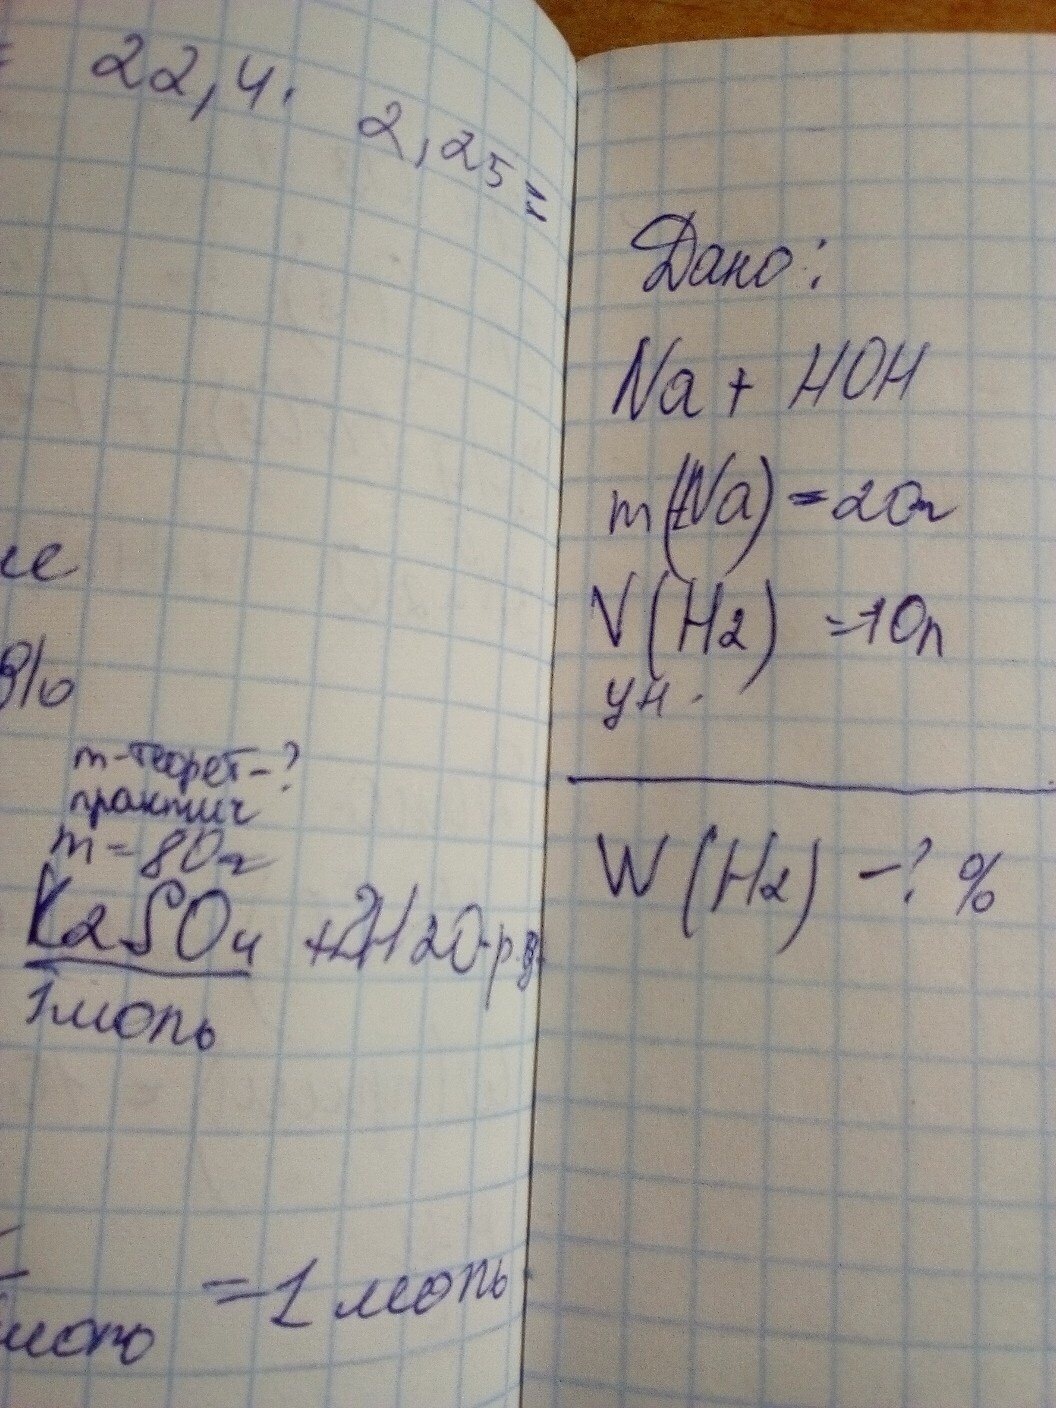 = 22,4 · 2,25 =
%
m-теорет-?
практич
m=80г
K2SO4 + 2H2O
1моль
= 1 моль
Дано:
Na + HOH
m(Na) = 20г
V(H2) = 10л
W(H2) -? %